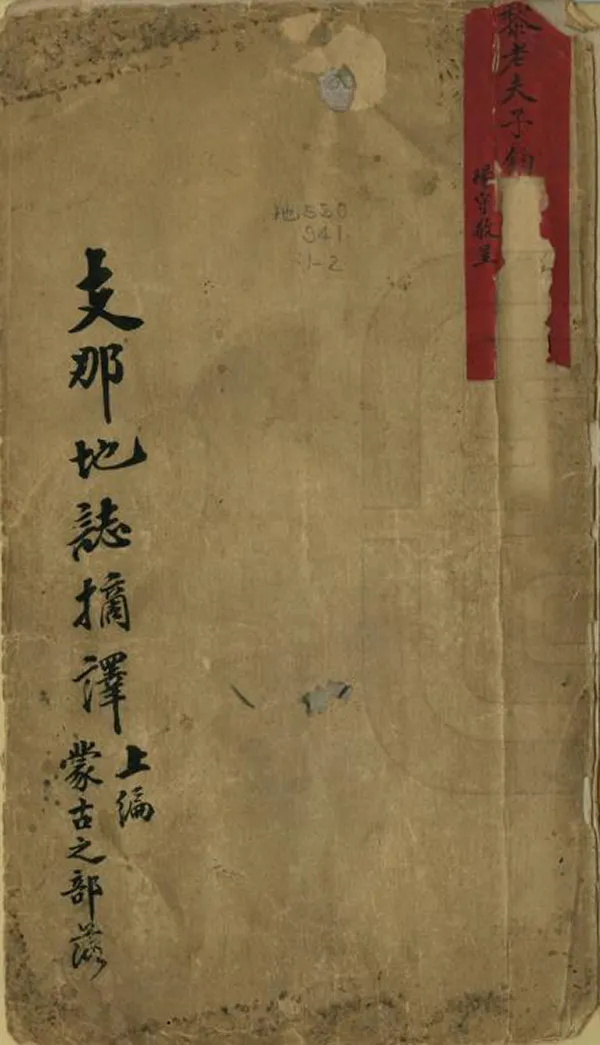 黎老夫子鈞
楊守敬呈
地550
941
:1-2
支那地誌摘譯
上編
蒙古之部落